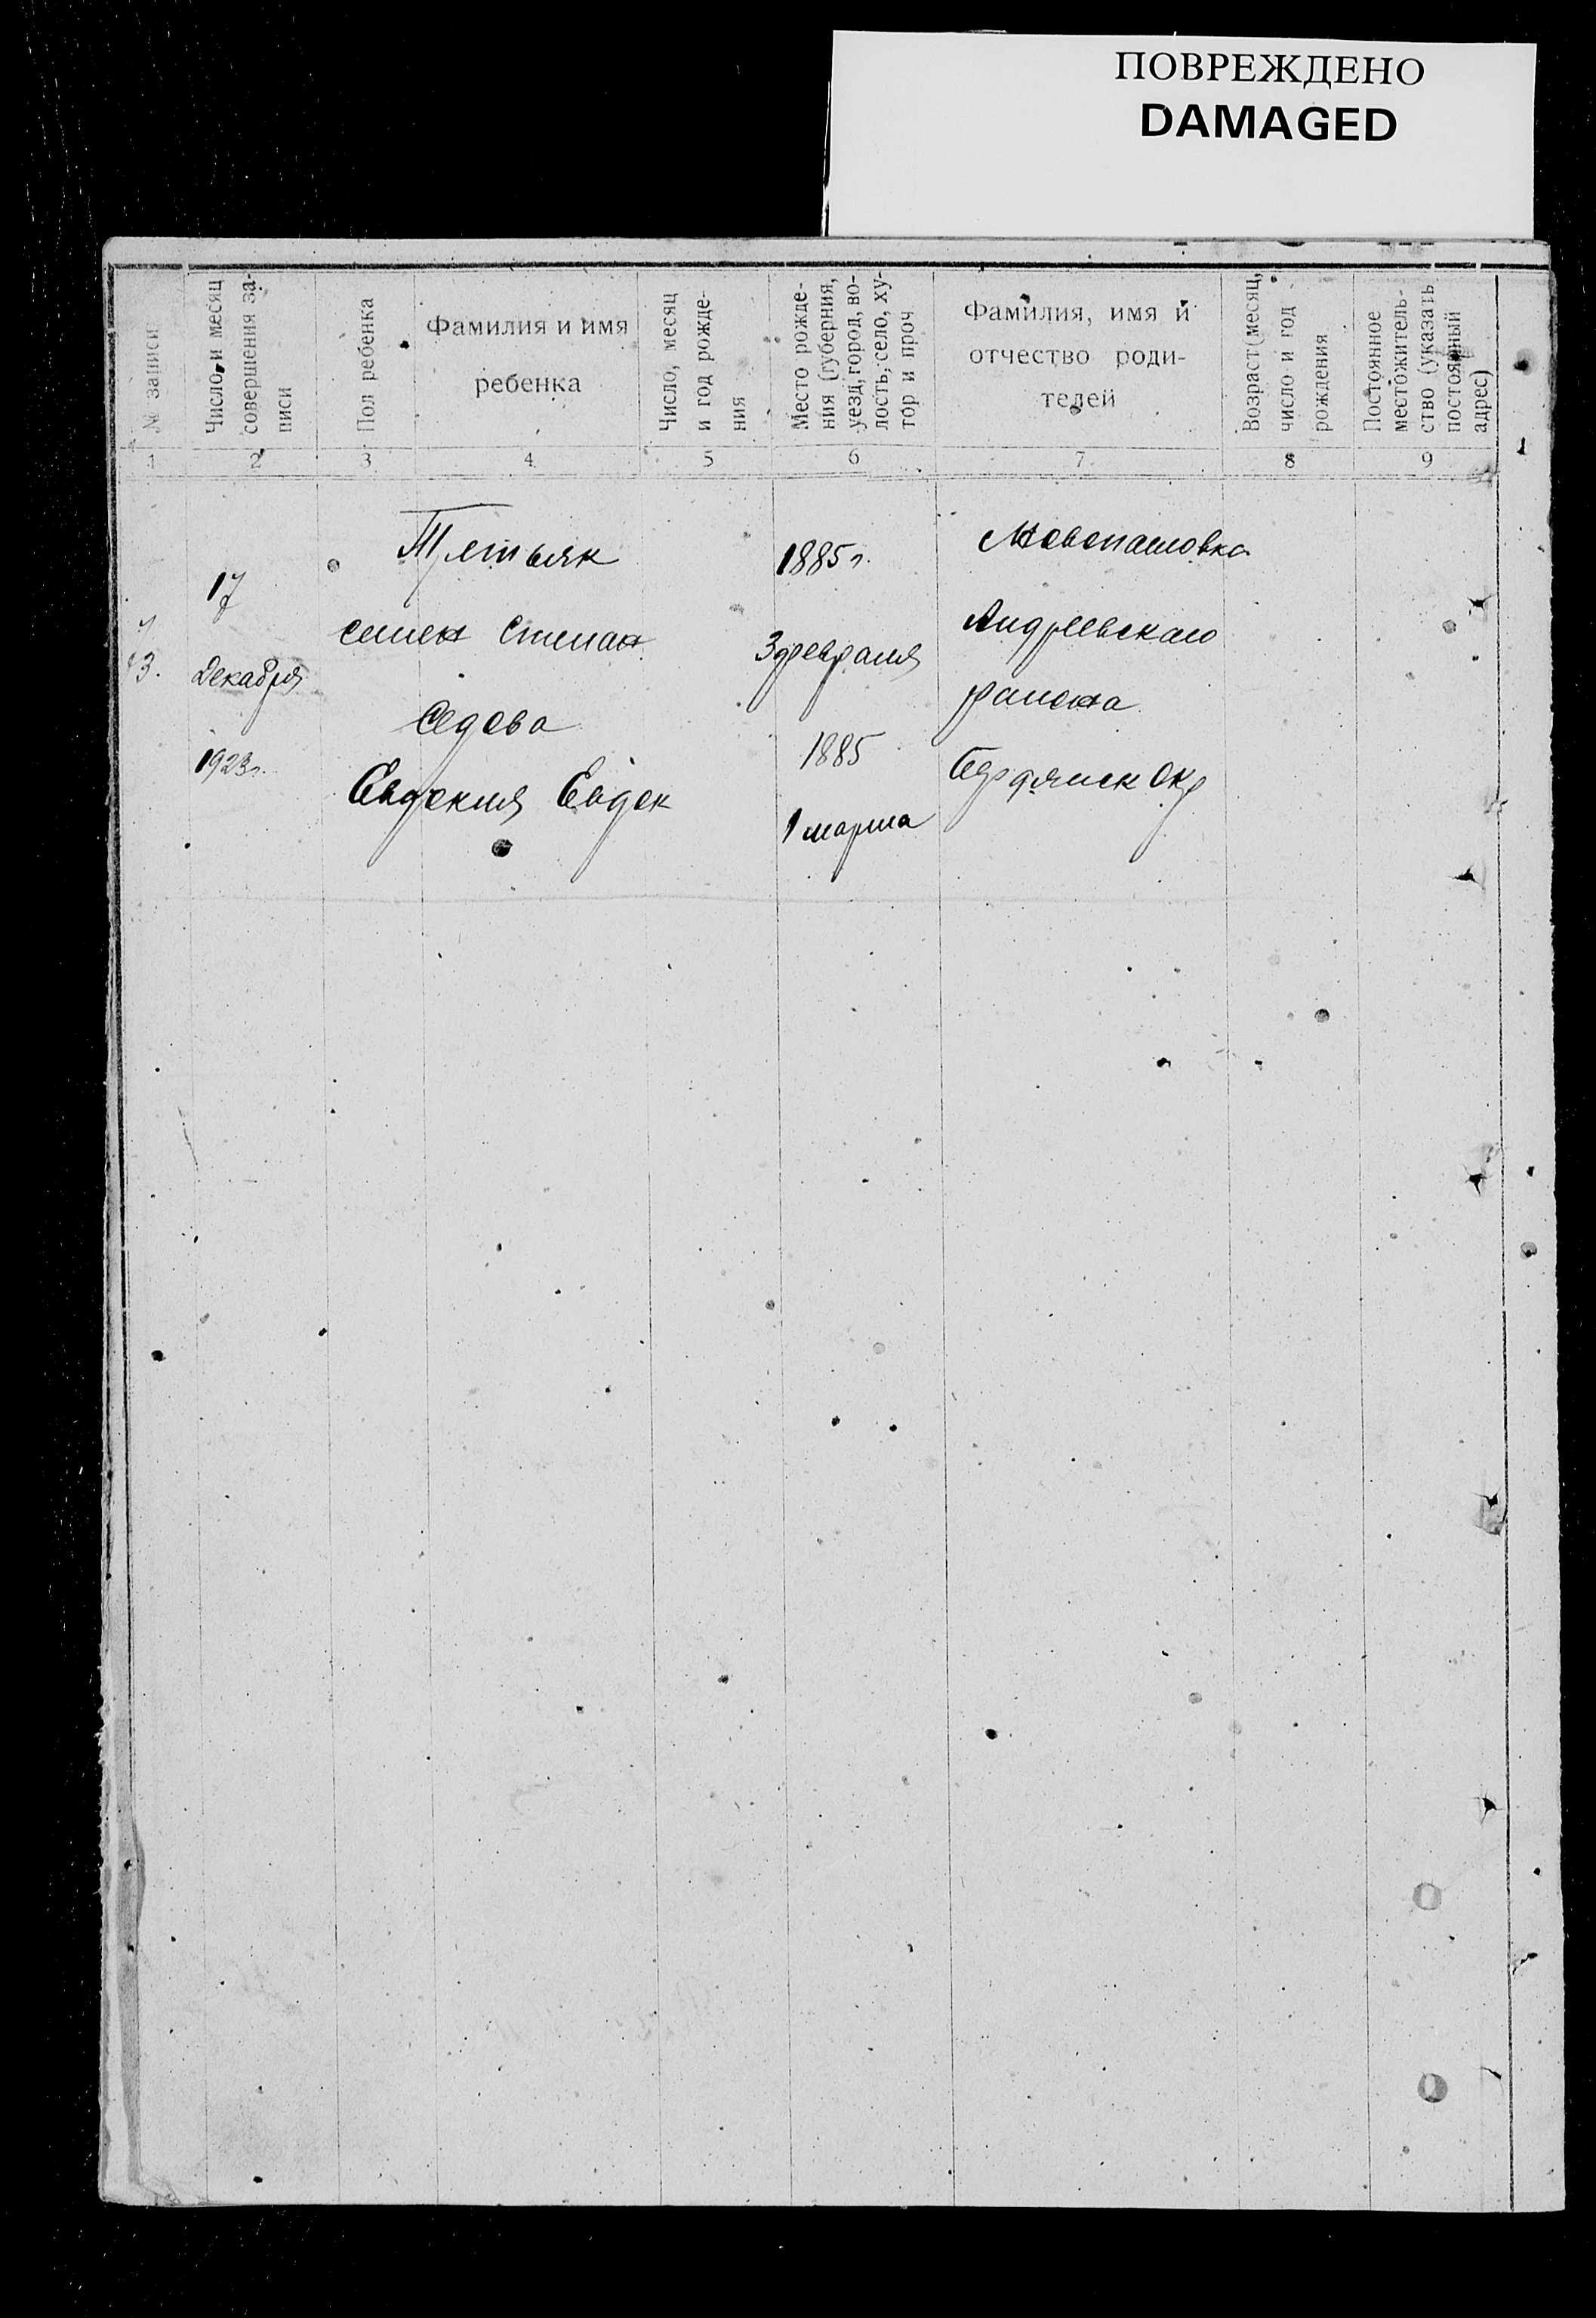 ПОВРЕЖДЕНО
DAMAGED
№ записи
Число, и месяц
совершения за-
писи
Пол ребенка
Фамилия и имя
ребенка
Число, месяц
и год рожде-
ния
Место рожде-
ния (губерния,
уезд, город, во-
лость, село, ху-
тор и проч
Фамилия, имя и
отчество роди-
телей
Возраст (месяц,
число и год
рождения
Постоянное
местожитель-
ство (указать
постоянный
адрес)
1 2 3 4 5 6 7 8 9
Третьяк
семен Степан
Седова
Евдокия Евдок
17
Декабря
1923г.
3.
1885г.
3 февраля
1885
1 марта
Новспасовка
Андреевскаго
раиона
Бердянск Окр